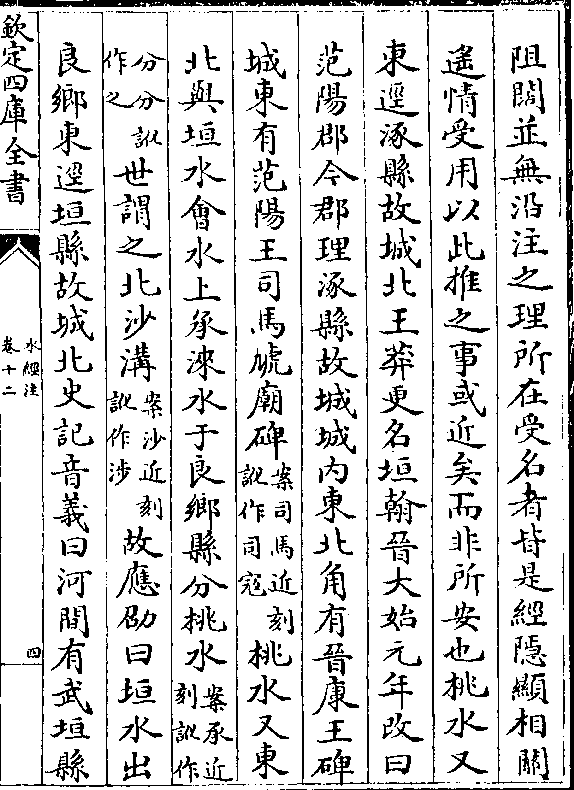 阻闊並無沿注之理所在受名者皆是經隱顯相關
遥情受用以此推之事或近矣而非所安也桃水又
東逕涿縣故城北王莽更名垣翰晉大始元年改曰
范陽郡今郡理涿縣故城城内東北角有晉康王碑
城東有范陽王司馬虓廟碑案司馬近刻訛作司寇桃水又東
北與垣水會水上承淶水于良鄉縣分桃水案承近刻訛作
分分訛作之世謂之北沙溝案沙近刻訛作涉故應劭曰垣水出
良鄉東逕垣縣故城北史記音義曰河間有武垣縣
欽定四庫全書
水經注
卷十二
四